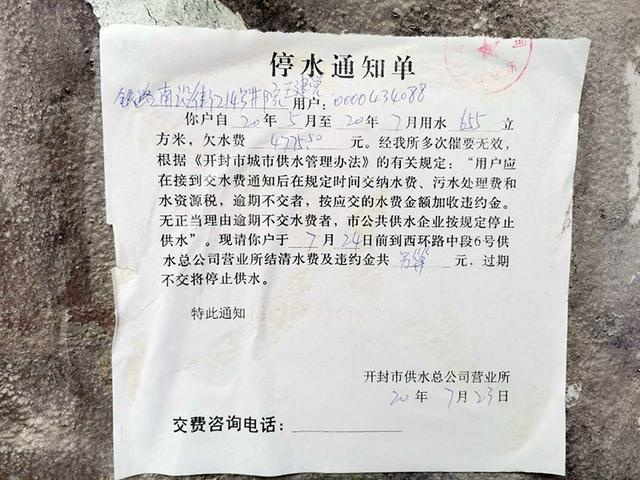 停水通知单
铁路南沿街214号院王建完用户:0000434088
你户自20年5月至20年7月用水655立
方米,欠水费477550元。经我所多次催要无效,
根据《开封市城市供水管理办法》的有关规定:“用户应
在接到交水费通知后在规定时间交纳水费、污水处理费和
水资源税,逾期不交者,按应交的水费金额加收违约金。
无正当理由逾期不交水费者,市公共供水企业按规定停止
供水”。现请你户于7月24日前到西环路中段6号供
水总公司营业所结清水费及违约金共另算元,过期
不交将停止供水。
特此通知
开封市供水总公司营业所
20年7月23日
交费咨询电话: